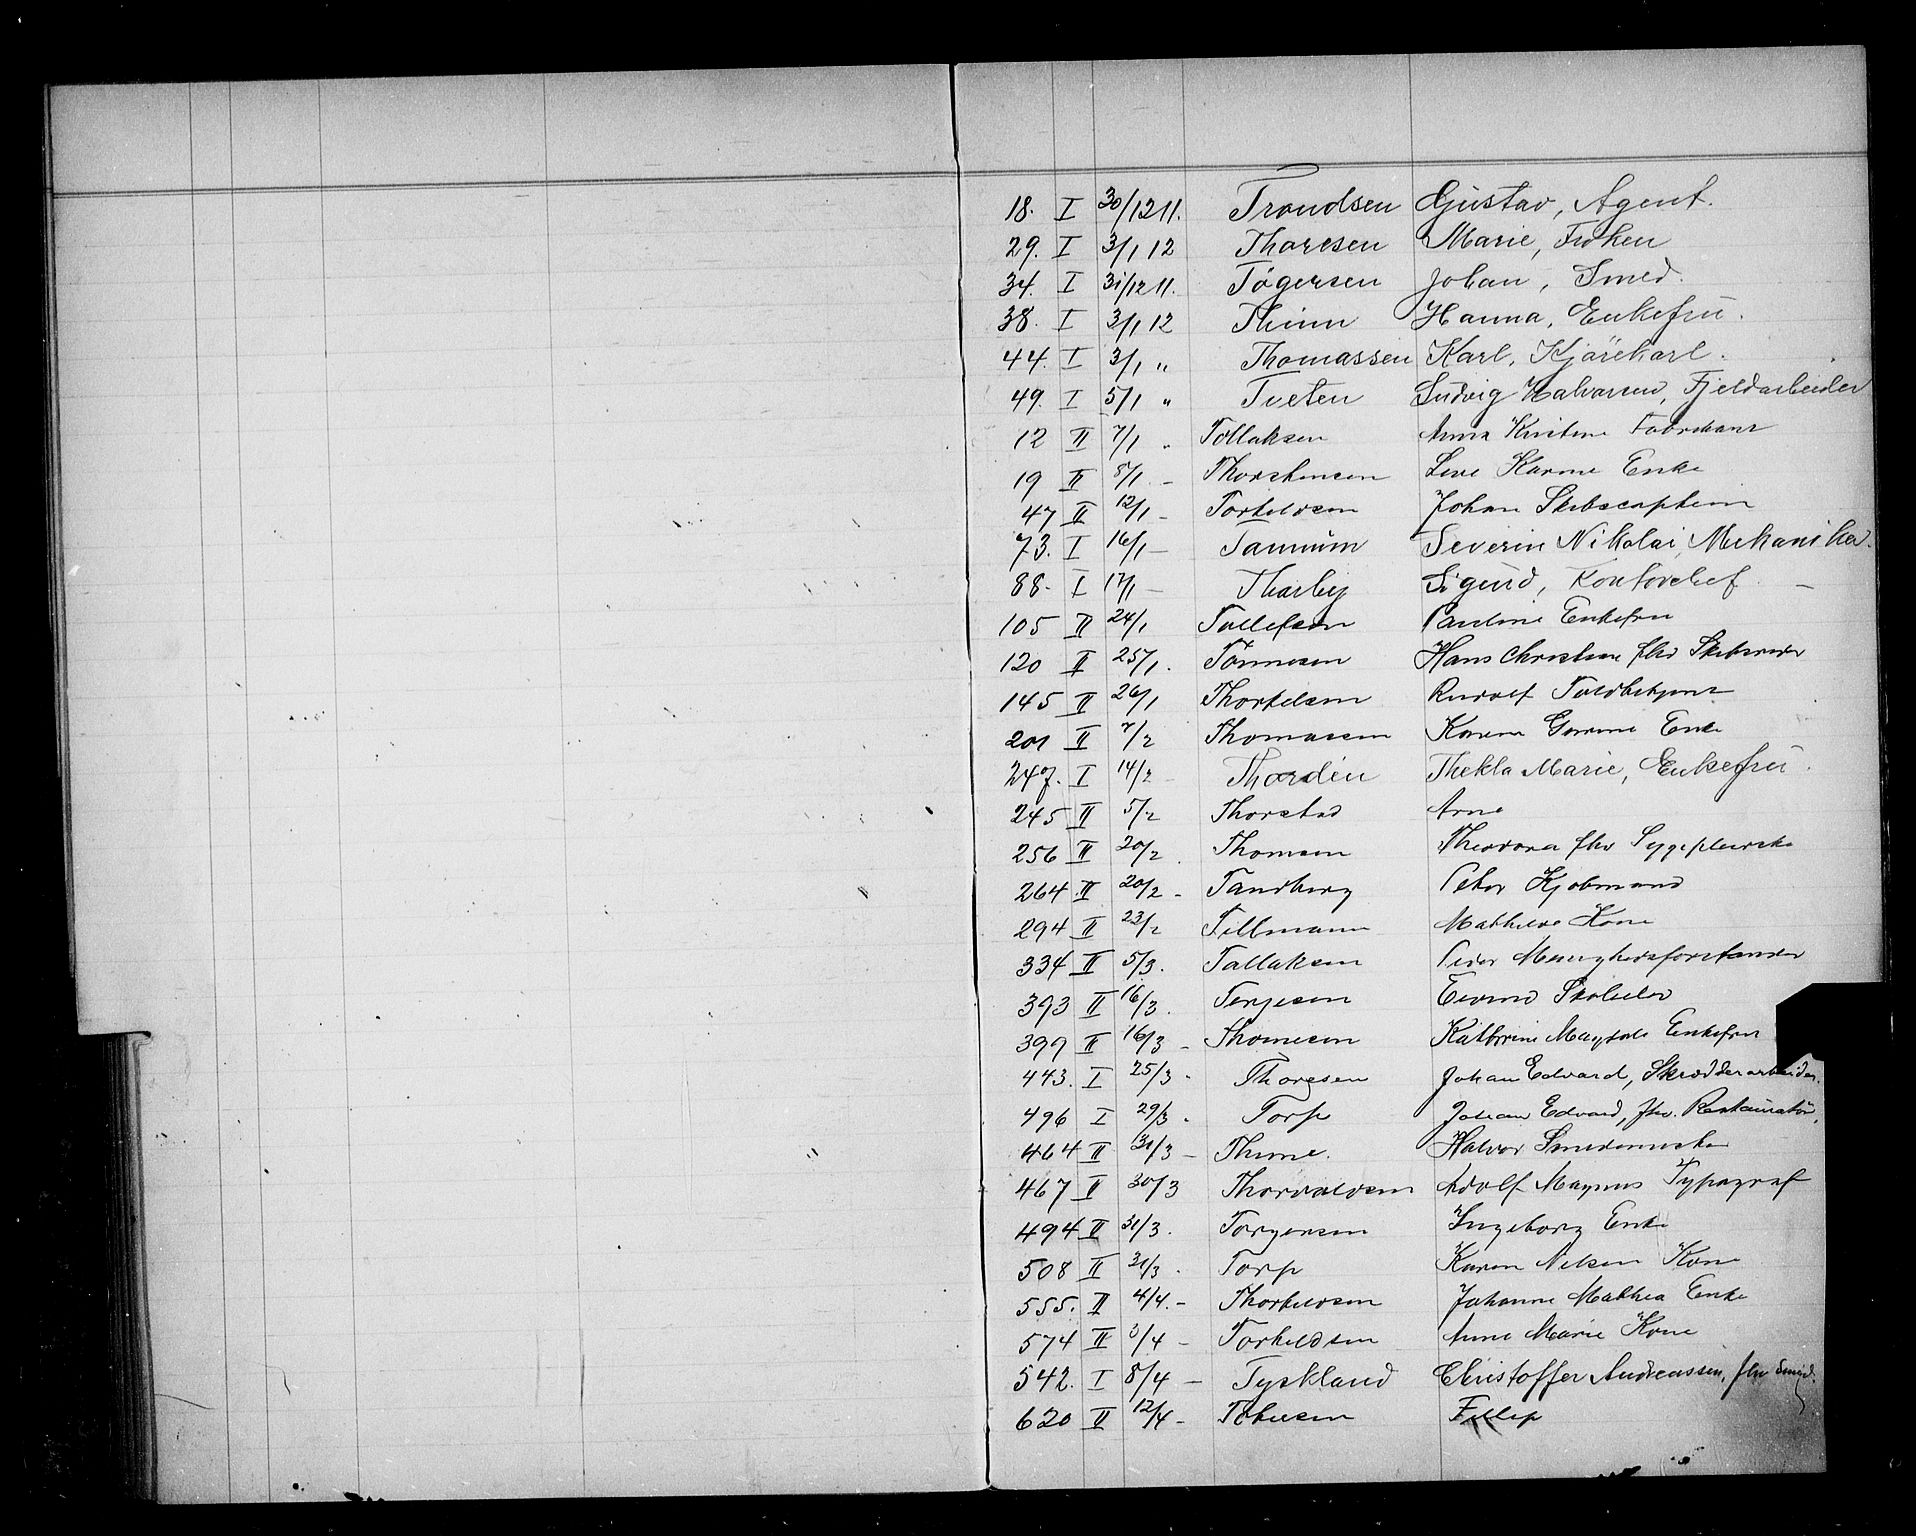 18. I 30/12 11. Trondsen Gustav, Agent.
29. I 3/1 12 Thoresen Marie, Frøken
34. I 31/12 11. Tögersen Johan, Smed.
38. I 3/1 12 Thinn Hanna, Enkefru.
44. I 3/1 " Thomassen Karl, Kjörekarl.
49. I 5/1 " Tveten Ludvig Halvorsen, Fjeldarbeider
12 II 7/1 " Tollaksen Anna Kristine
19 II 8/1 - Thorstensen Karine Enke
47 II 12/1 - Torkildsen Johan Skibscaptein
73. I 16/1 - Tannum Severin Nikolai, Mekaniker.
88. I 17/1 - Thorby Sigurd, Kontorchef -
105 II 24/1 Tollefsen Pauline Enkefru
120 II 25/1. Tönnesen Hans Christian fhv Skibsreder
145 II 26/1 Thorkelsen Rudolf Toldbetjent
201 II 7/2 Thomassen Karen Gurine Enke
247. I 14/2 - Thordén Thekla Marie, Enkefru.
245 II 5/2 Thorstad Arne
256 II 20/2. Thomsen Theodora fhv Sygepleierske
264. II 20/2 - Tandberg Peter Kjøbmand
294 II 23/2 Tillmann Mathilde Kone
334 II 5/3. Tallaksen Peder Menighedsforstander
393 II 16/3. Terjesen Eivind Skoleelev
399 II 16/3 - Thomesen Kathrine Magdale Enkefru
443. I 25/3 - Thoresen Johan Edvard, Skrædderarbeider.
496 I 29/3. Torp Johan Edvard, fhv. Restauratör,
464 II 31/3 - Thime. Halvor Smedemester
467 II 30/3 Thorvaldsen Adolf Magnus Typograf
494 II 31/3. Torgersen Ingeborg Enke
508 II 31/3. Torp Karen Nilsen Kone
555. II 4/4. - Thorkildsen Johanne Mathea Enke
574 II 3/4 - Torkildsen Anne Marie Kone
542. I 8/4 - Tyskland Christoffer Andreassen, fhv Smed.
620 II 12/4 - Tobiesen Filip